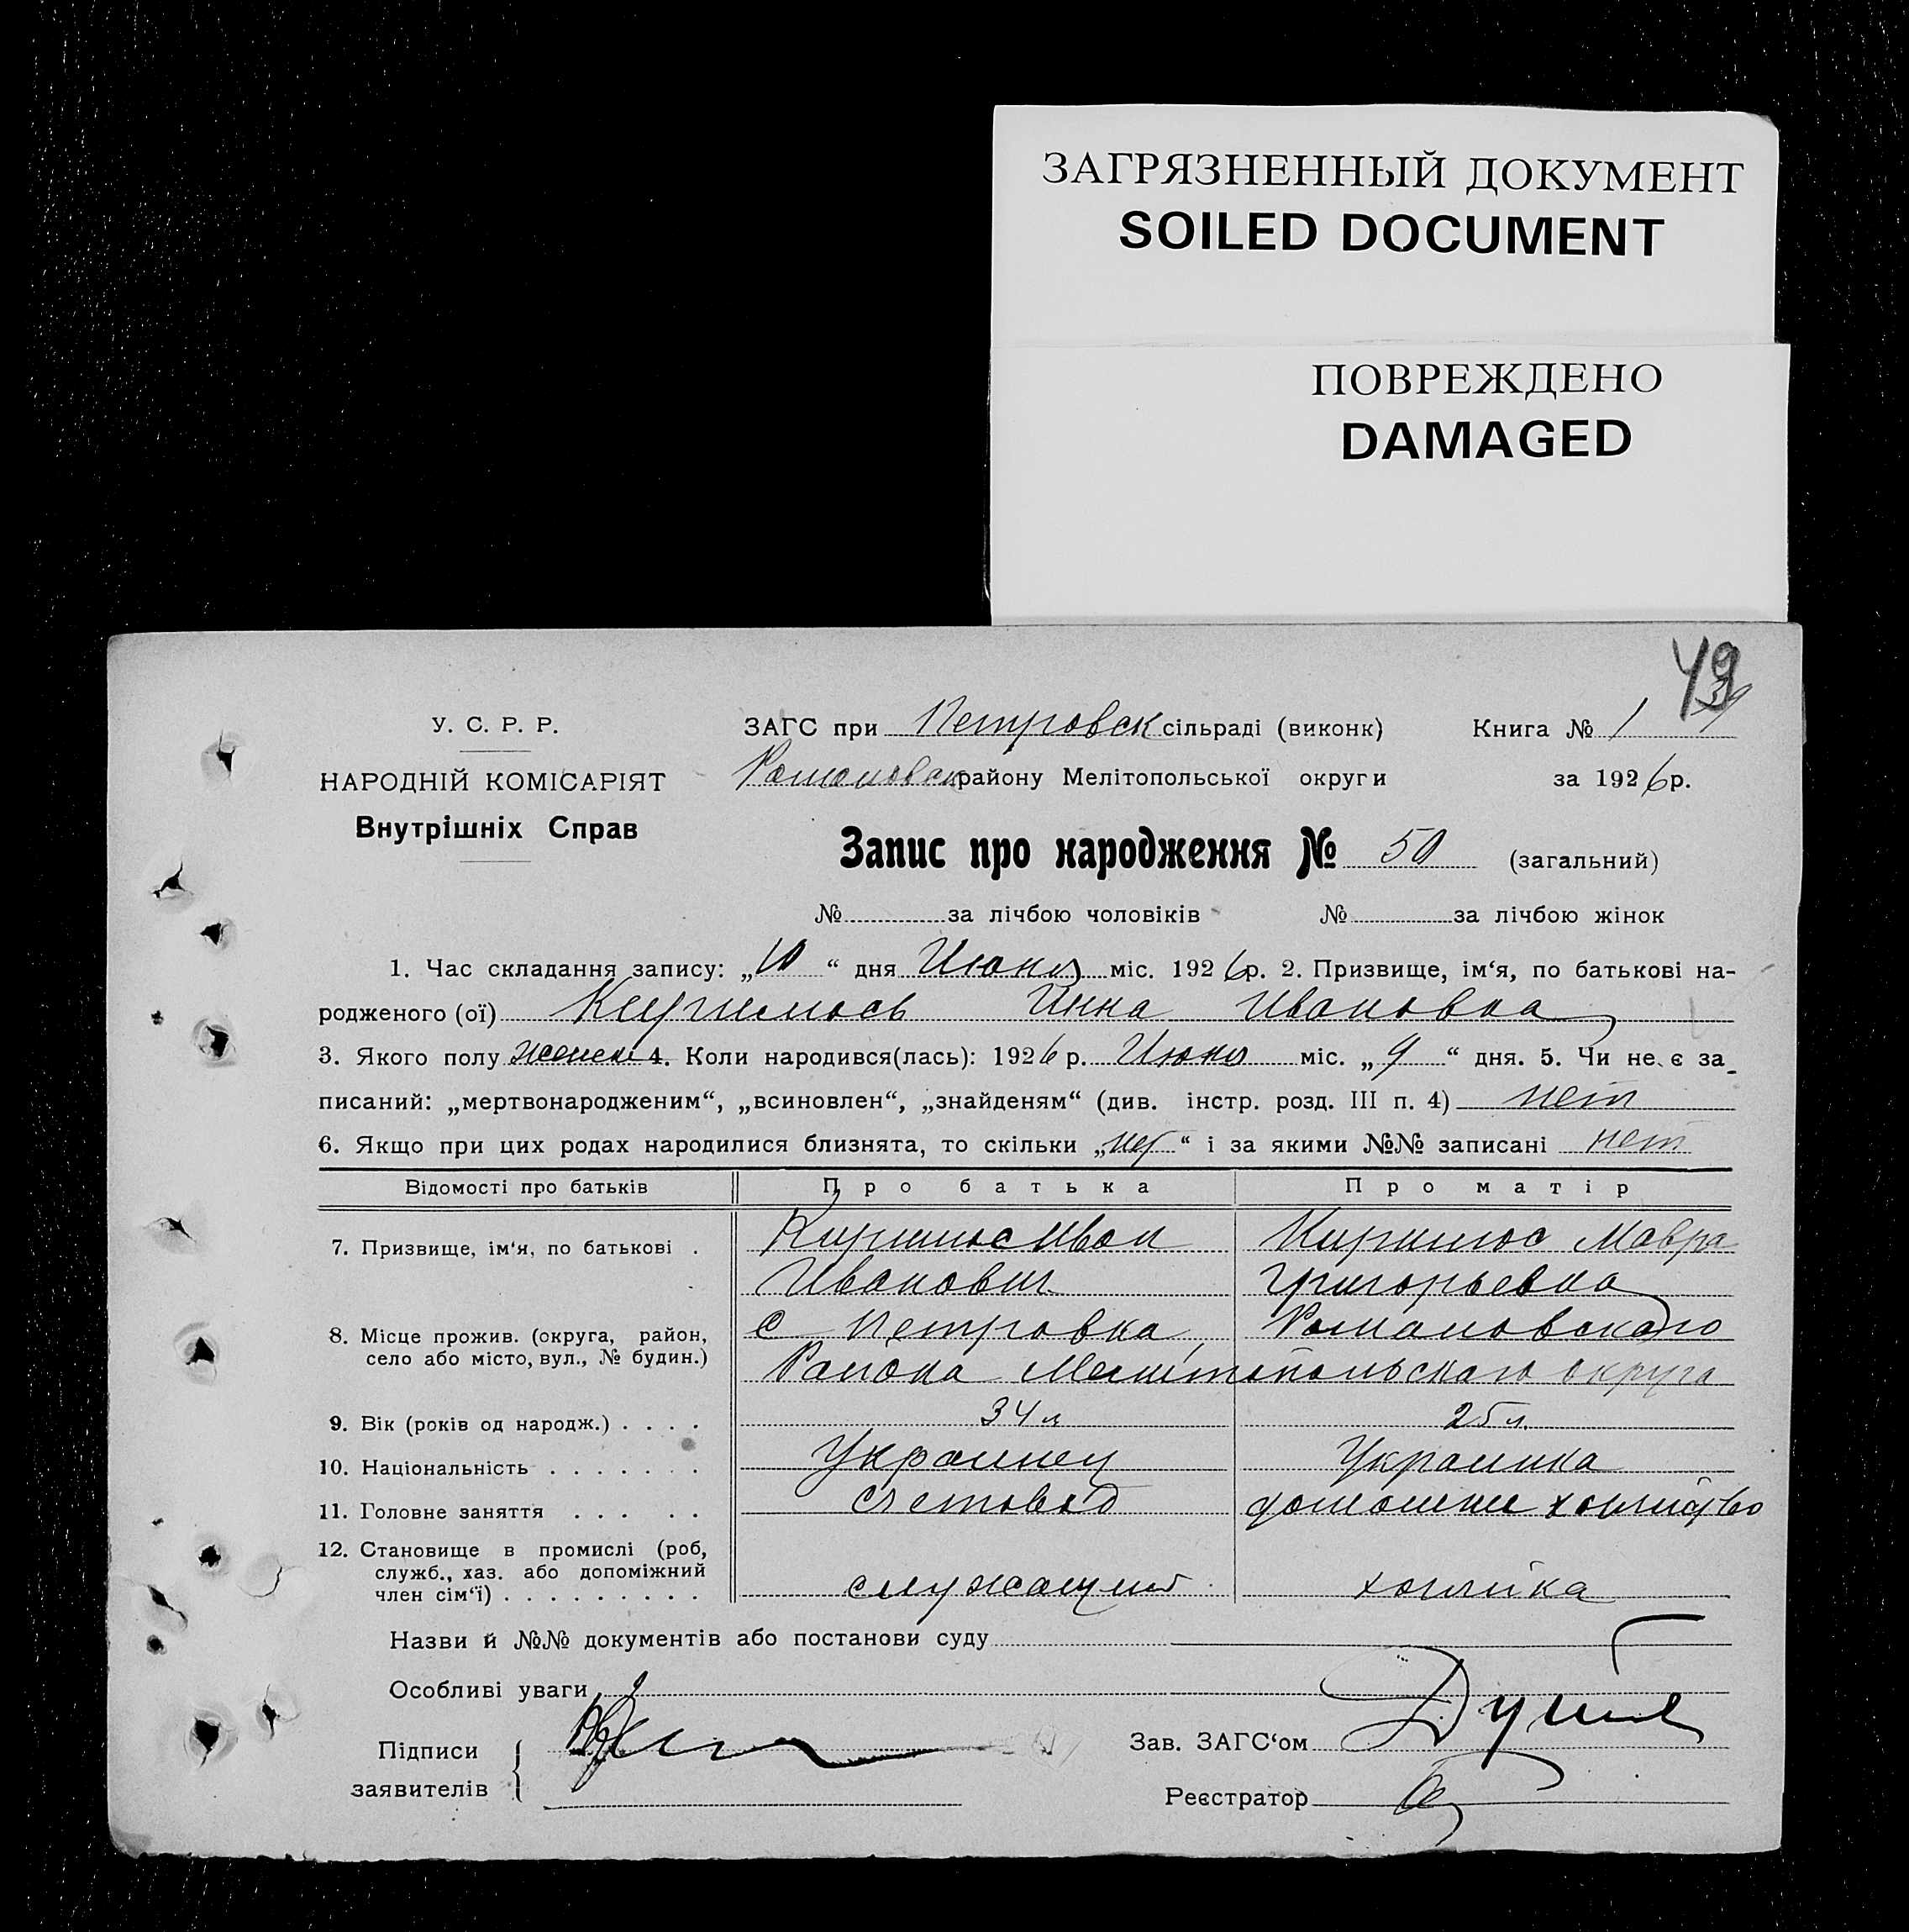 ЗАГРЯЗНЕННЫЙ ДОКУМЕНТ
SOILED DOCUMENT
ПОВРЕЖДЕНО
DAMAGED
49
У. С. Р. Р.
ЗАГС при Петровск сільраді (виконк) Книга № 1
НАРОДНІЙ КОМІСАРІЯТ
Романовск району Мелітопольської округи за 1926 р.
Внутрішніх Справ
Запис про народження № 50 (загальний)
№ за лічбою чоловіків № за лічбою жінок
1. Час складання запису: „10“ дня Июня міс. 1926 р. 2. Призвище, ім‘я, по батькові на-
родженого (ої) Инна Ивановна
3. Якого полу женск 4. Коли народився(лась): 1926 р. Июня міс. „9“ дня. 5. Чи не є за-
писаний: „мертвонародженим“, „всиновлен“, „знайденям“ (див. інстр. розд. III п. 4) нет
6. Якщо при цих родах народилися близнята, то скільки „нет“ і за якими №№ записані нет
Відомості про батьків Про батька Про матір
7. Призвище, ім‘я, по батькові . Иван Мавра
Иванович Григорьевна
8. Місце прожив. (округа, район, с Петровка Романовского
село або місто, вул., № будин.) Района Мелитопольского округа
9. Вік (років од народж.) . . . . 34 л 25 л.
10. Національність . . . . . . . Украинец Украинка
11. Головне заняття . . . . . счетовод домашне хозяйство
12. Становище в промислі (роб,
служб., хаз. або допоміжний
член сім‘ї) . . . . . . . . . служащий
Назви й №№ документів або постанови суду
Особливі уваги
Підписи
Зав. ЗАГС‘ом
заявителів
Реєстратор